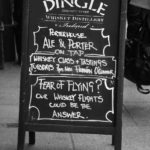 DINGLE
WHISKEY DISTILLERY
PORTERHOUSE
ALE & PORTER
ON TAP
WHISKEY CLASS & TASTINGS
TUESDAYS
FEAR OF FLYING?
OUR WHISKEY FLIGHTS
COULD BE THE
ANSWER.